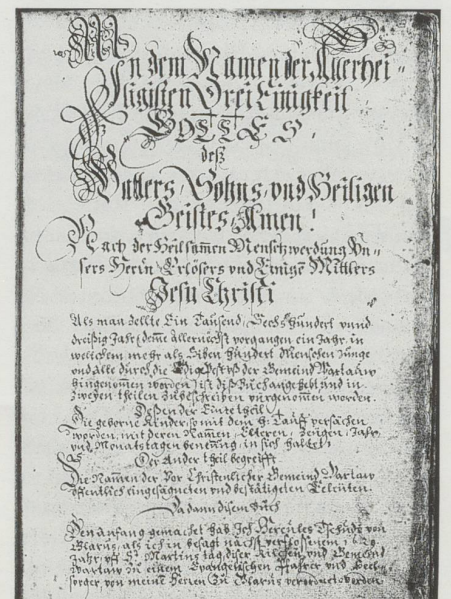 In dem Namen der Allerhei=
ligisten Drei Einigkeit
GOTTES,
deß
Vatters, Sohns, vnd Heiligen
Geistes, Amen!
Nach der Heilsamen Menschwerdung Vn=
sers Herrn Erlösers vnd Einigē Mittlers
Jesu Christi
Als man zellte Ein Tausend, Sechs Hundert vnnd
dreißig Jahr, deme allernächst vorgangen ein Jahr, in
welichem mehr als Siben Hundert Menschen Junge
vnd alte durch die Pest vß der Gemeind Wartauw
hingenomen worden, ist diß Buch angehebt vnd in
zweyen theilen zubeschreiben vürgenomen worden.
Dessen der Eine theil
Die geborne Kinder, so mit dem H. Tauff versächen
worden, mit deren Namen, Elteren, Zeügen, Jahr
vnd Monatstagen benenung, in sich haltet,
Der Ander theil begreifft
Die Namen der vor Christenlicher Gemeind Wartaw
öffentlich eingesägneten vnd bestätigeten Eeleüten.
Da dann disem buch
Den anfang gemachet hab Ich Hercules Tschudi von
Glarus, als ich in besagt nächst verflossenem 1629
Jahr, vff S. Martins tag, diser Kilchen vnd Gemeind
Wartaw zu einem Evangelischen Pfahrer vnd Seel=
sorger, von meinen Herren zu Glarus verordnet worden.